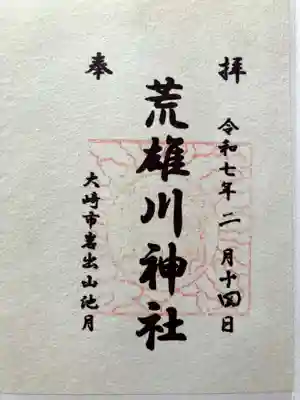 奉
拝
荒雄川神社
令和七年二月十四日
大崎市岩出山池月